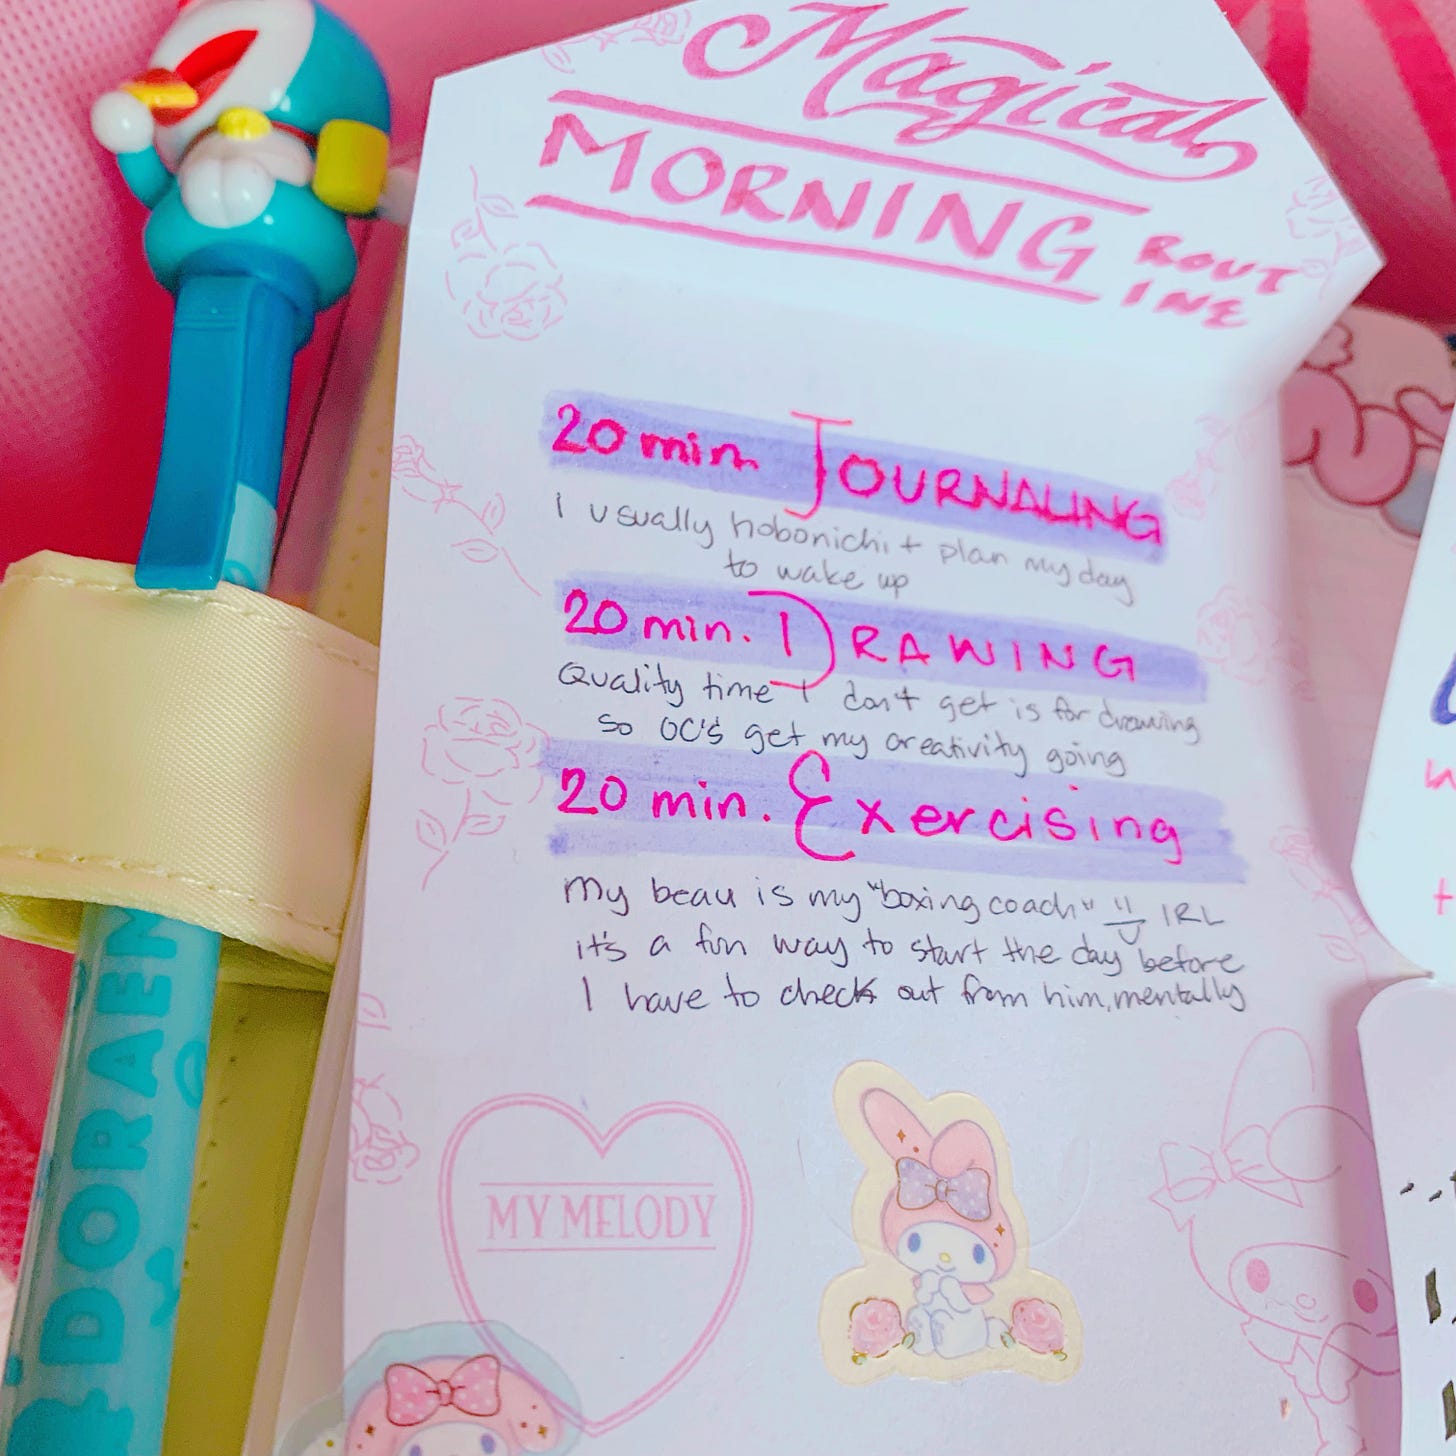 Magical
MORNING
ROUT
INE
20 min. JOURNALING
I usually hobonichi + plan my day
to wake up
20 min. DRAWING
Quality time I don't get is for drawing
so OC's get my creativity going
20 min. Exercising
My beau is my "boxing coach" IRL
it's a fun way to start the day before
I have to check out from him, mentally
MY MELODY
DORAEM